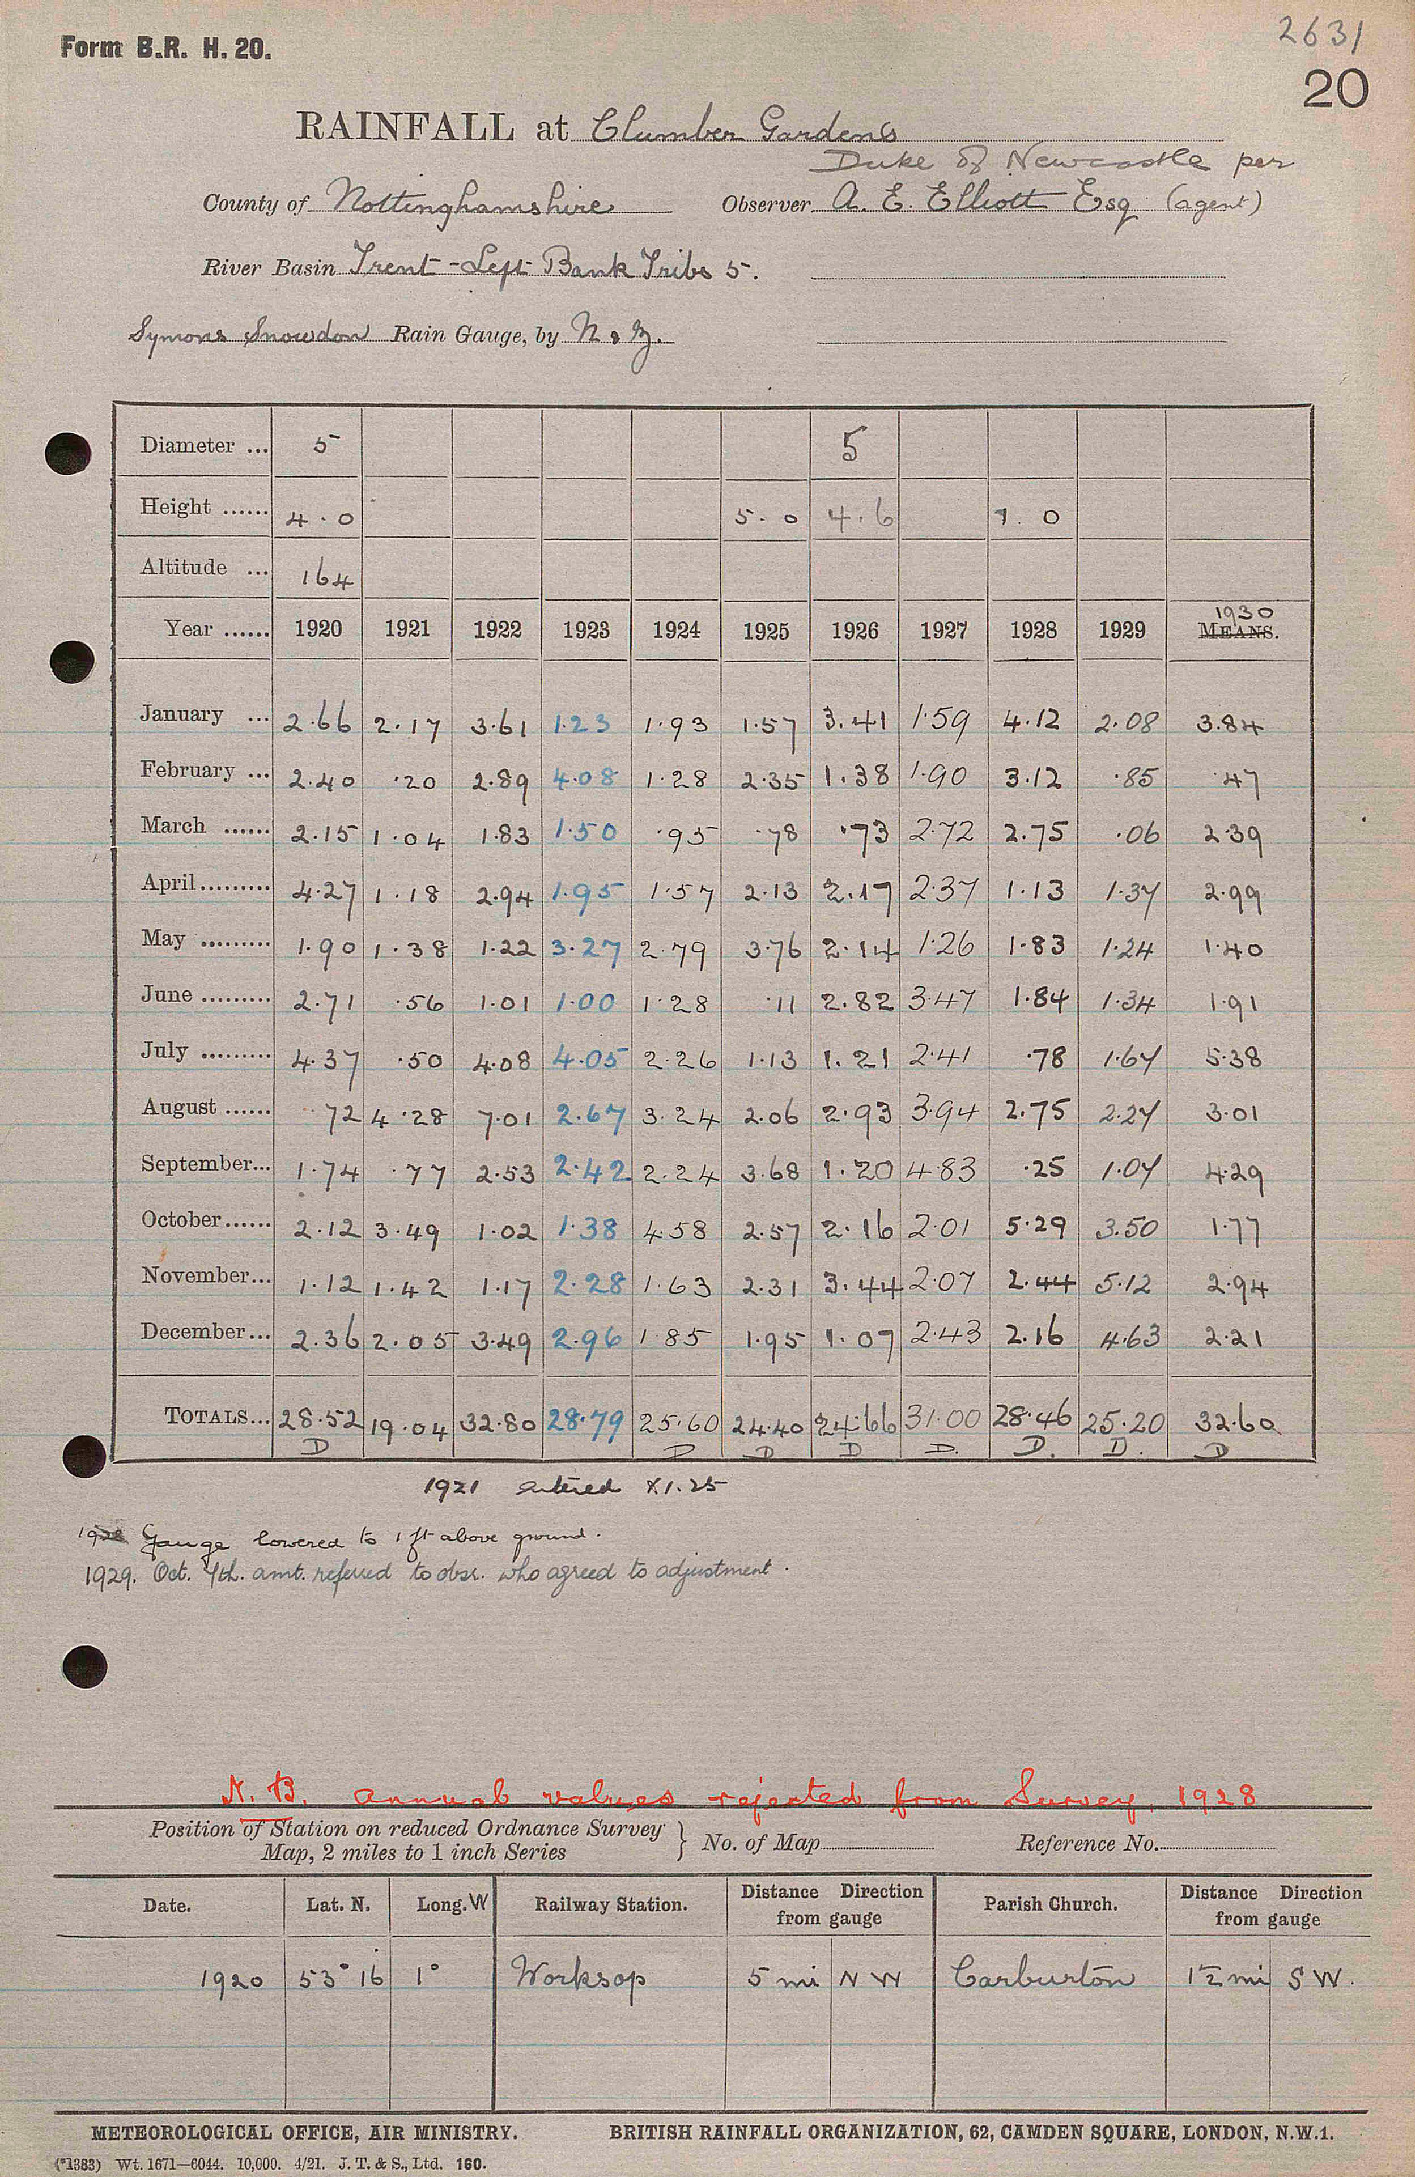 2631
Form B.R. H. 20.
20
RAINFALL at Clumber Gardens
Duke of Newcastle per
County of Nottinghamshire Observer A. E. Elliott Esq (agent)
River Basin Trent - Left Bank Tribs 5.
Symons Snowdon Rain Gauge, by N & Z.
Diameter ... 5 5
Height ...... 4.0 5.0 4.6 1.0
Altitude ... 164
1930
Year ...... 1920 1921 1922 1923 1924 1925 1926 1927 1928 1929 MEANS.
January ... 2.66 2.17 3.61 1.23 1.93 1.57 3.41 1.59 4.12 2.08 3.84
February ... 2.40 .20 2.89 4.08 1.28 2.35 1.38 1.90 3.12 .85 .47
March ...... 2.15 1.04 1.83 1.50 .95 .78 .73 2.72 2.75 .06 2.39
April ......... 4.27 1.18 2.94 1.95 1.57 2.13 2.17 2.37 1.13 1.37 2.99
May ......... 1.90 1.38 1.22 3.27 2.79 3.76 2.14 1.26 1.83 1.24 1.40
June ......... 2.71 .56 1.01 1.00 1.28 .11 2.82 3.47 1.84 1.34 1.91
July ......... 4.37 .50 4.08 4.05 2.26 1.13 1.21 2.41 .78 1.67 5.38
August ...... .72 4.28 7.01 2.67 3.24 2.06 2.93 3.94 2.75 2.27 3.01
September... 1.74 .77 2.53 2.42 2.24 3.68 1.20 4.83 .25 1.07 4.29
October...... 2.12 3.49 1.02 1.38 4.58 2.57 2.16 2.01 5.29 3.50 1.77
November... 1.12 1.42 1.17 2.28 1.63 2.31 3.44 2.07 2.44 5.12 2.94
December... 2.36 2.05 3.49 2.96 1.85 1.95 1.07 2.43 2.16 4.63 2.21
TOTALS... 28.52 19.04 32.80 28.79 25.60 24.40 24.66 31.00 28.46 25.20 32.60
D D D D D. D. D. D
1921 entered X 1.25
Gauge lowered to 1 ft above ground.
1929. Oct. 7th. amt. referred to obsr. who agreed to adjustment.
N. B. Annual values rejected from Survey, 1928
Position of Station on reduced Ordnance Survey
Map, 2 miles to 1 inch Series } No. of Map Reference No.
Date. Lat. N. Long. W Railway Station. Distance Direction from gauge Parish Church. Distance Direction from gauge
1920 53° 16 1° Worksop 5 mi N W Carburton 1½ mi S W.
METEOROLOGICAL OFFICE, AIR MINISTRY. BRITISH RAINFALL ORGANIZATION, 62, CAMDEN SQUARE, LONDON, N.W.1.
(*1383) Wt. 1671—6044. 10,000. 4/21. J. T. & S., Ltd. 160.